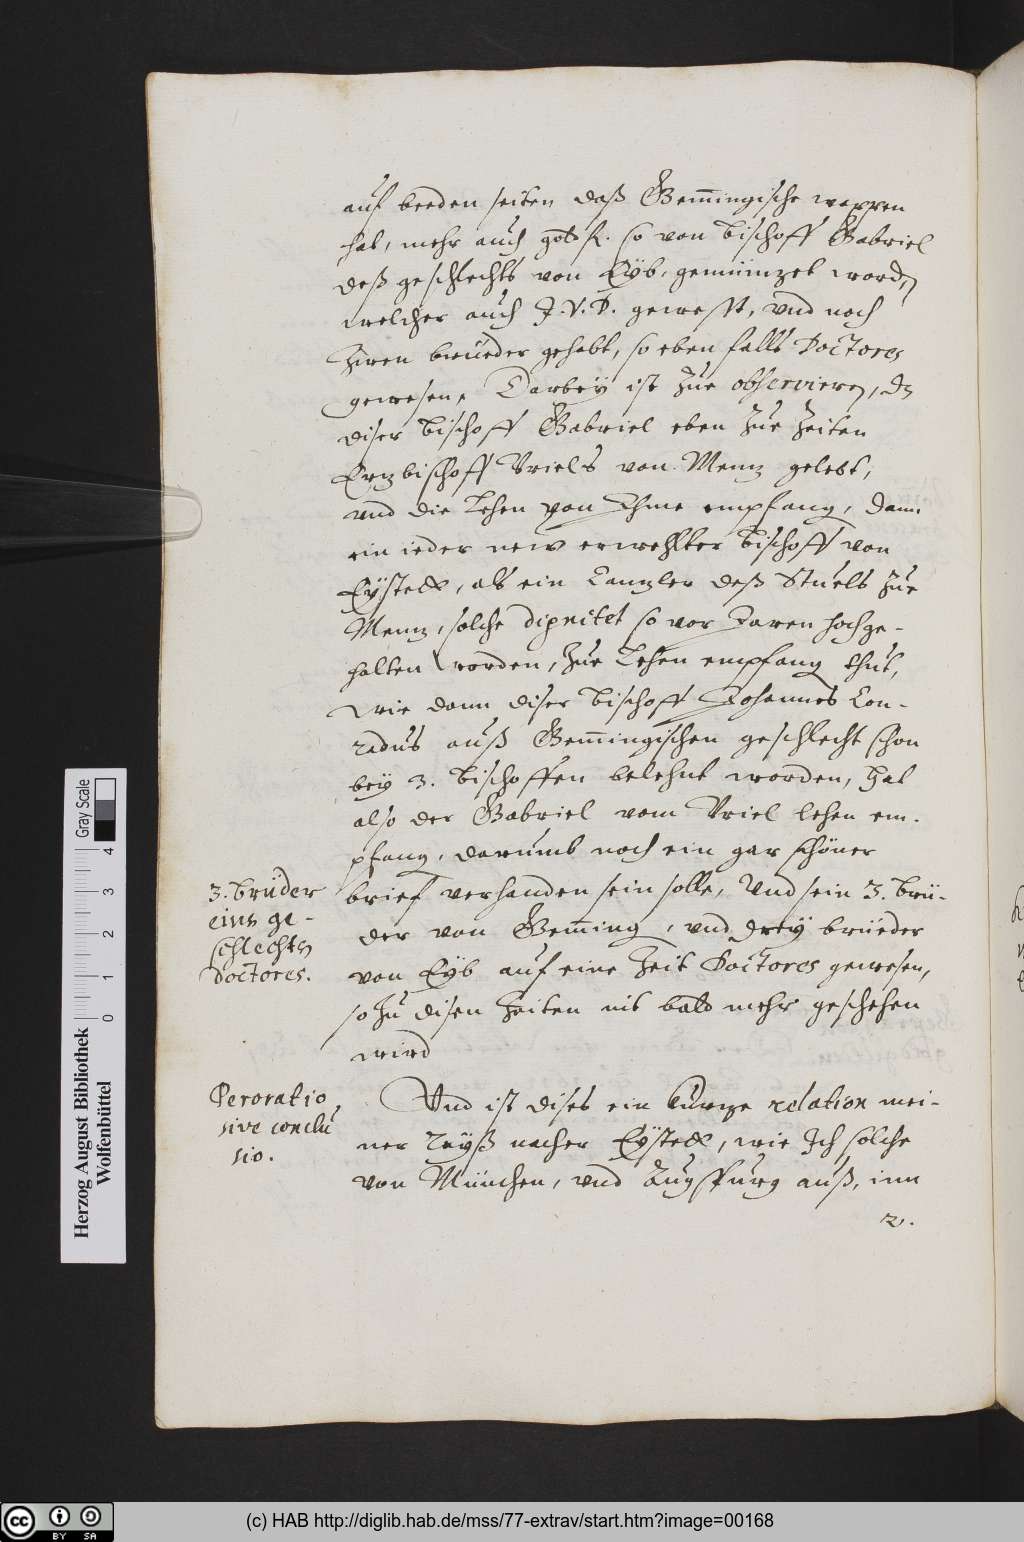 auf beeden seiten daß Gem̄ingische wappen
hat, mehr auch goldfl. so von Bischoff Gabriel
deß geschlechts von Eÿb, gemüntzet worden,
welcher auch J.V.D. gewesst, vnd noch
zwen brüeder gehabt, so ebenfalls Doctores
gewesen, Darbeÿ ist zue observieren, dz
diser Bischoff Gabriel eben zue Zeiten
Ertzbischoff Vriels von Mentz gelebt,
vnd die Lehen von Ihme empfang, dann
ein ieder new erwehlter Bischoff von
Eÿstett, als ein Cantzler deß Stuels zue
Mentz, solche dignitet so vor Jaren hochge-
halten worden, zue Lehen empfang thut,
wie dann diser Bischoff Johannes Con-
radus auß Gem̄ingischen geschlecht schon
beÿ 3. Bischoffen belehnt worden, hat
also der Gabriel vom Vriel lehen em-
pfang, darumb noch ein gar schöner
brief verhanden sein solle, Vnd sein 3. brü-
der von Gem̄ing, vnd dreÿ brüeder
von Eÿb auf eine Zeit Doctores gewesen,
so zu disen Zeiten nit bald mehr geschehen
wird
3. brüder
eins ge-
schlechts
Doctores.
Vnd ist dises ein kurtze relation mei-
ner Raÿß nacher Eÿstett, wie Ich solche
von München, vnd Augspurg auß, inn
Peroratio
sive conclu
sio.
2.
Herzog August Bibliothek
Wolfenbüttel
0 1 2 3 4
Gray Scale
cc BY SA
(c) HAB http://diglib.hab.de/mss/77-extrav/start.htm?image=00168